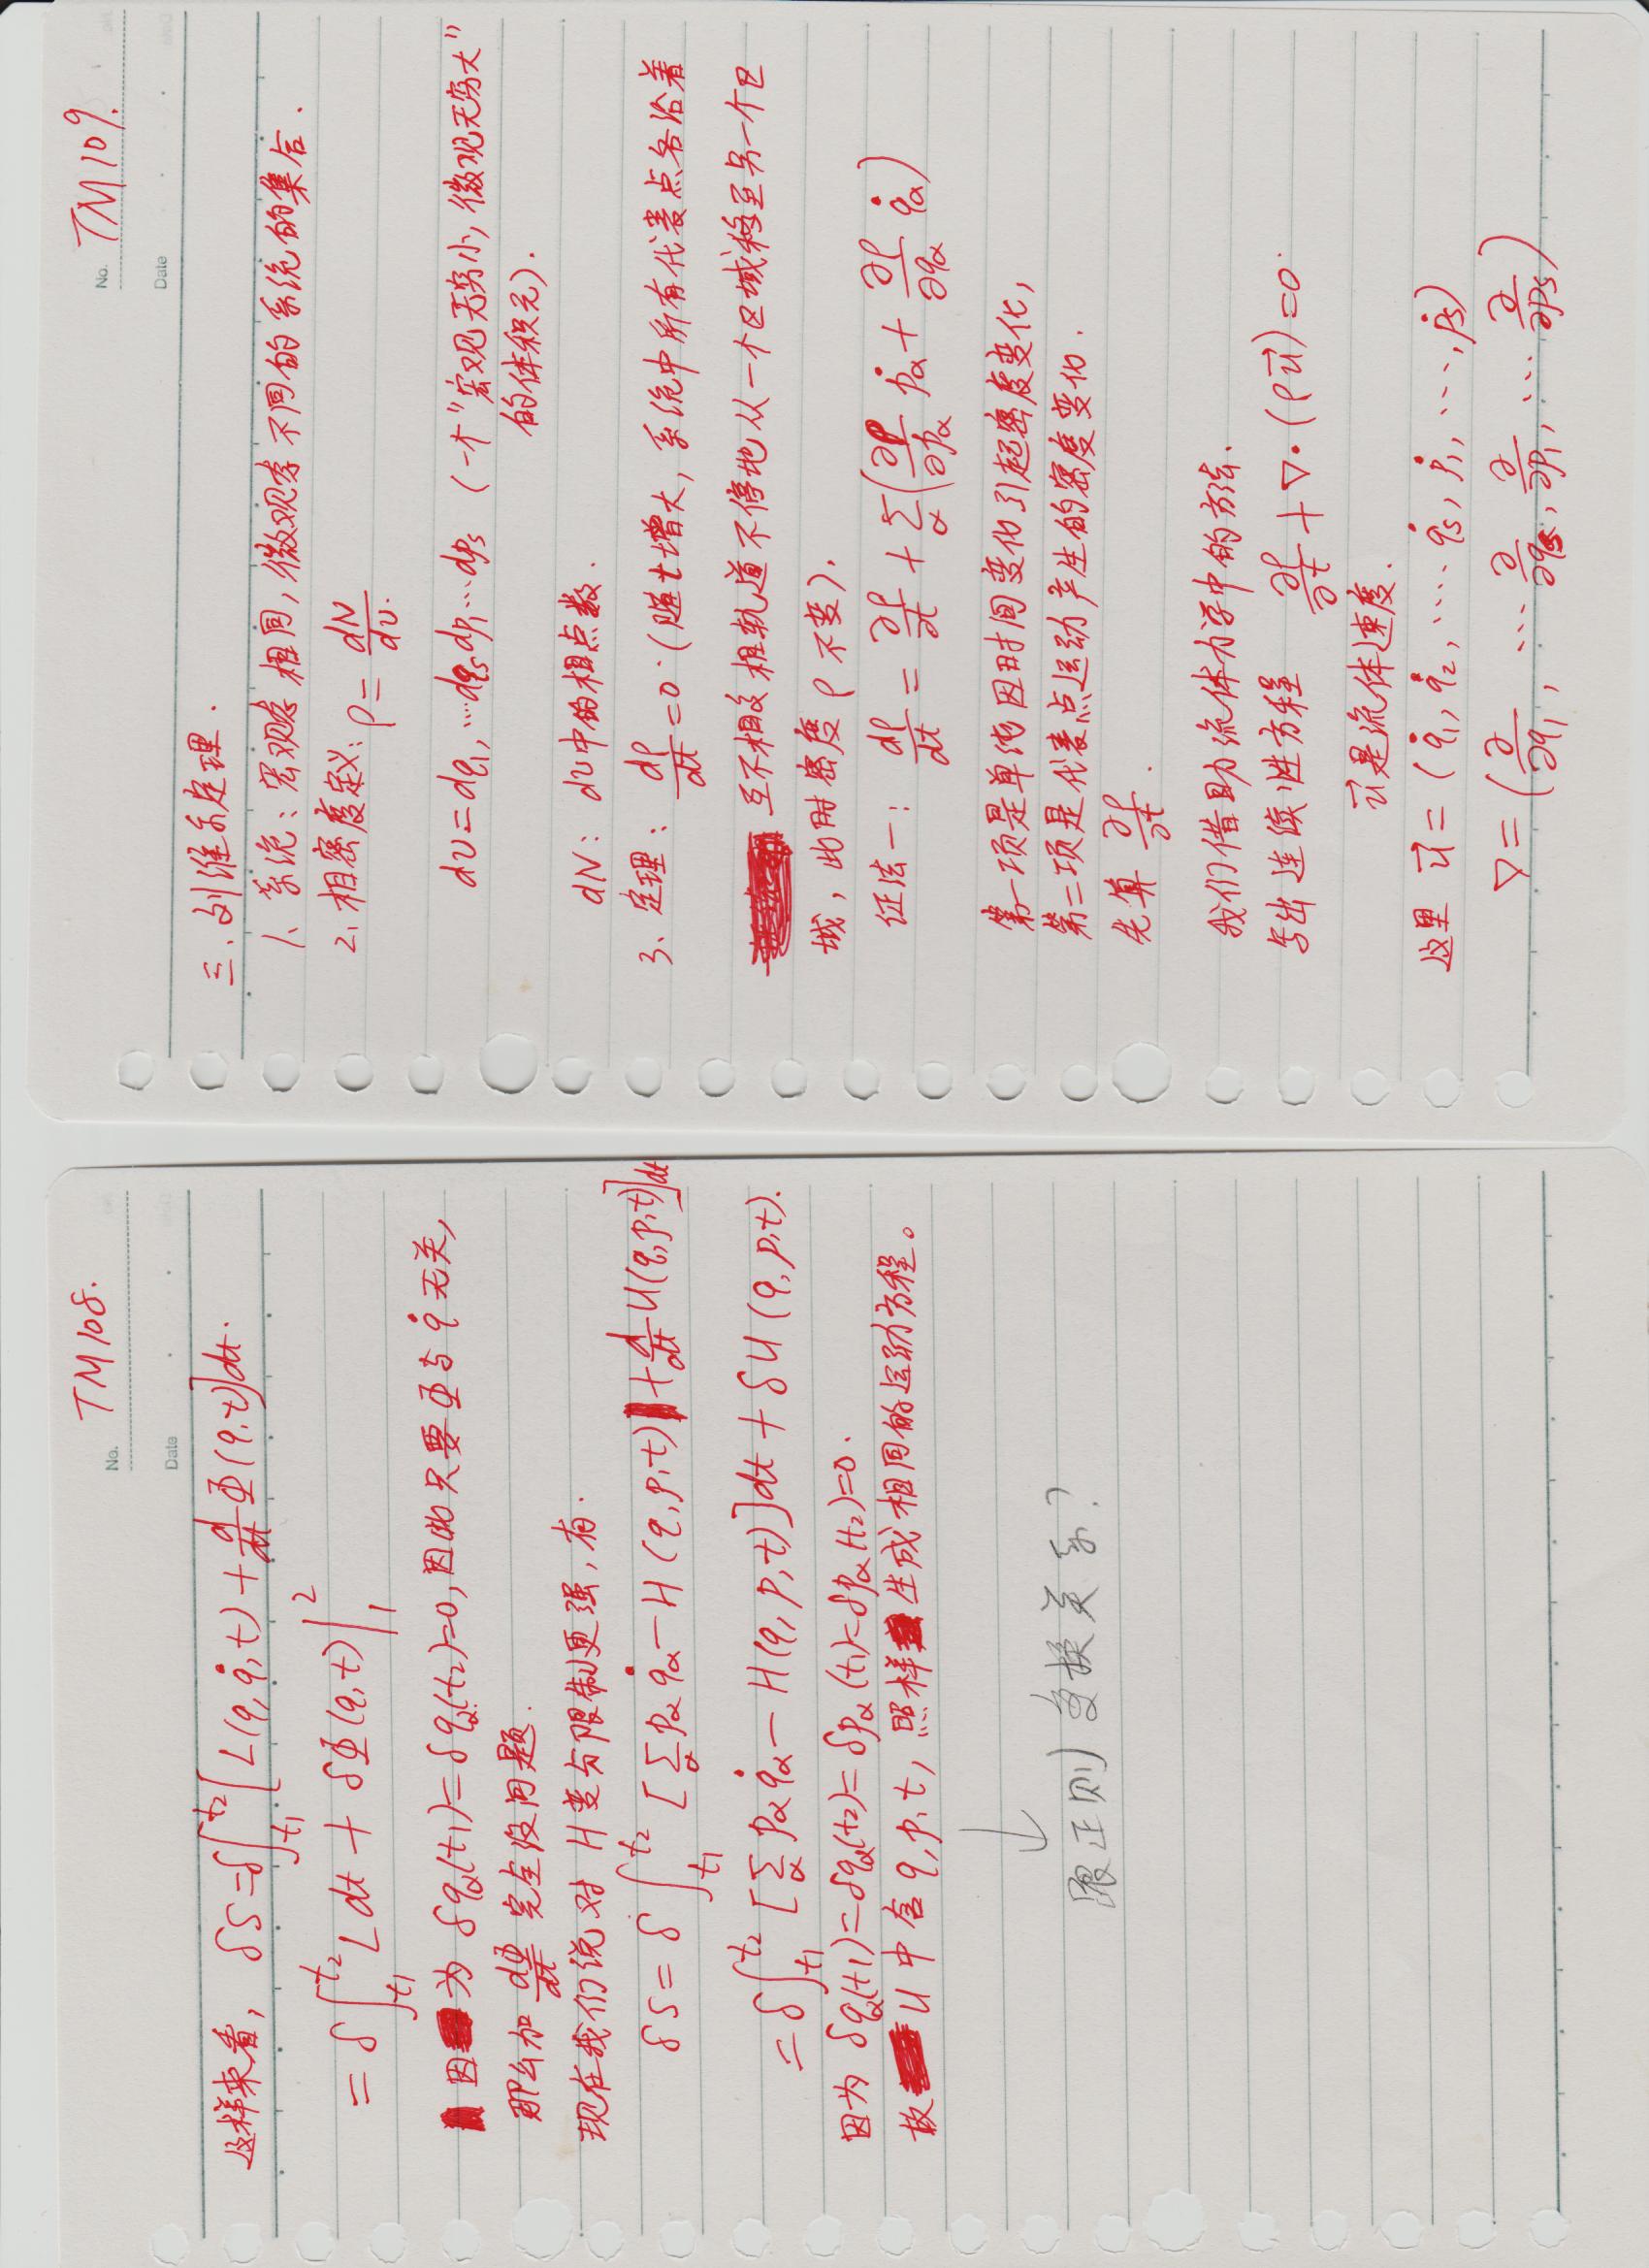 No. TM108.
Date
这样来看, δS=δ∫_{t₁}^{t₂}[L(q,q̇,t)+d/dt Φ(q,t)]dt.
=δ∫_{t₁}^{t₂}Ldt+δΦ(q,t)|₁²
因为 δq_α(t₁)=δq_α(t₂)=0,因此只要Φ与q̇无关,
那么加 dΦ/dt 完全没问题.
现在我们说对H变分限制更强,有.
δS=δ∫_{t₁}^{t₂}[∑_α p_α q̇_α−H(q,p,t)+d/dt U(q,p,t)]dt
=δ∫_{t₁}^{t₂}[∑_α p_α q̇_α−H(q,p,t)]dt+δU(q,p,t).
因为 δq_α(t₁)=δq_α(t₂)=δp_α(t₁)=δp_α(t₂)=0.
故 U中含q,p,t,照样生成相同的运动方程。
↓
跟正则变换关系?
No. TM109.
Date
三.刘维尔定理.
1、系统:宏观态相同,微观态不同的系统的集合.
2、相密度定义: ρ=dN/dυ.
dυ=dq₁,…dq_s dp₁…dp_s (一个"宏观无穷小,微观无穷大"
的体积元).
dN: dυ中的相点数.
3、定理: dρ/dt=0.(随t增大,系统中所有代表点各沿着
互不相交相轨道不停地从一个区域移至另一个区
域,此时密度ρ不变).
证法一: dρ/dt=∂ρ/∂t+∑_α(∂ρ/∂p_α ṗ_α+∂ρ/∂q_α q̇_α)
第一项是单纯因时间变化引起密度变化,
第二项是代表点运动产生的密度变化.
先算 ∂ρ/∂t.
我们借助流体力学中的方法.
写出连续性方程 ∂ρ/∂t+∇·(ρu⃗)=0.
u⃗是流体速度.
这里 u⃗=(q̇₁,q̇₂,….q̇_s,ṗ₁,…,ṗ_s)
∇=(∂/∂q₁,…∂/∂q_s,∂/∂p₁,…∂/∂p_s)